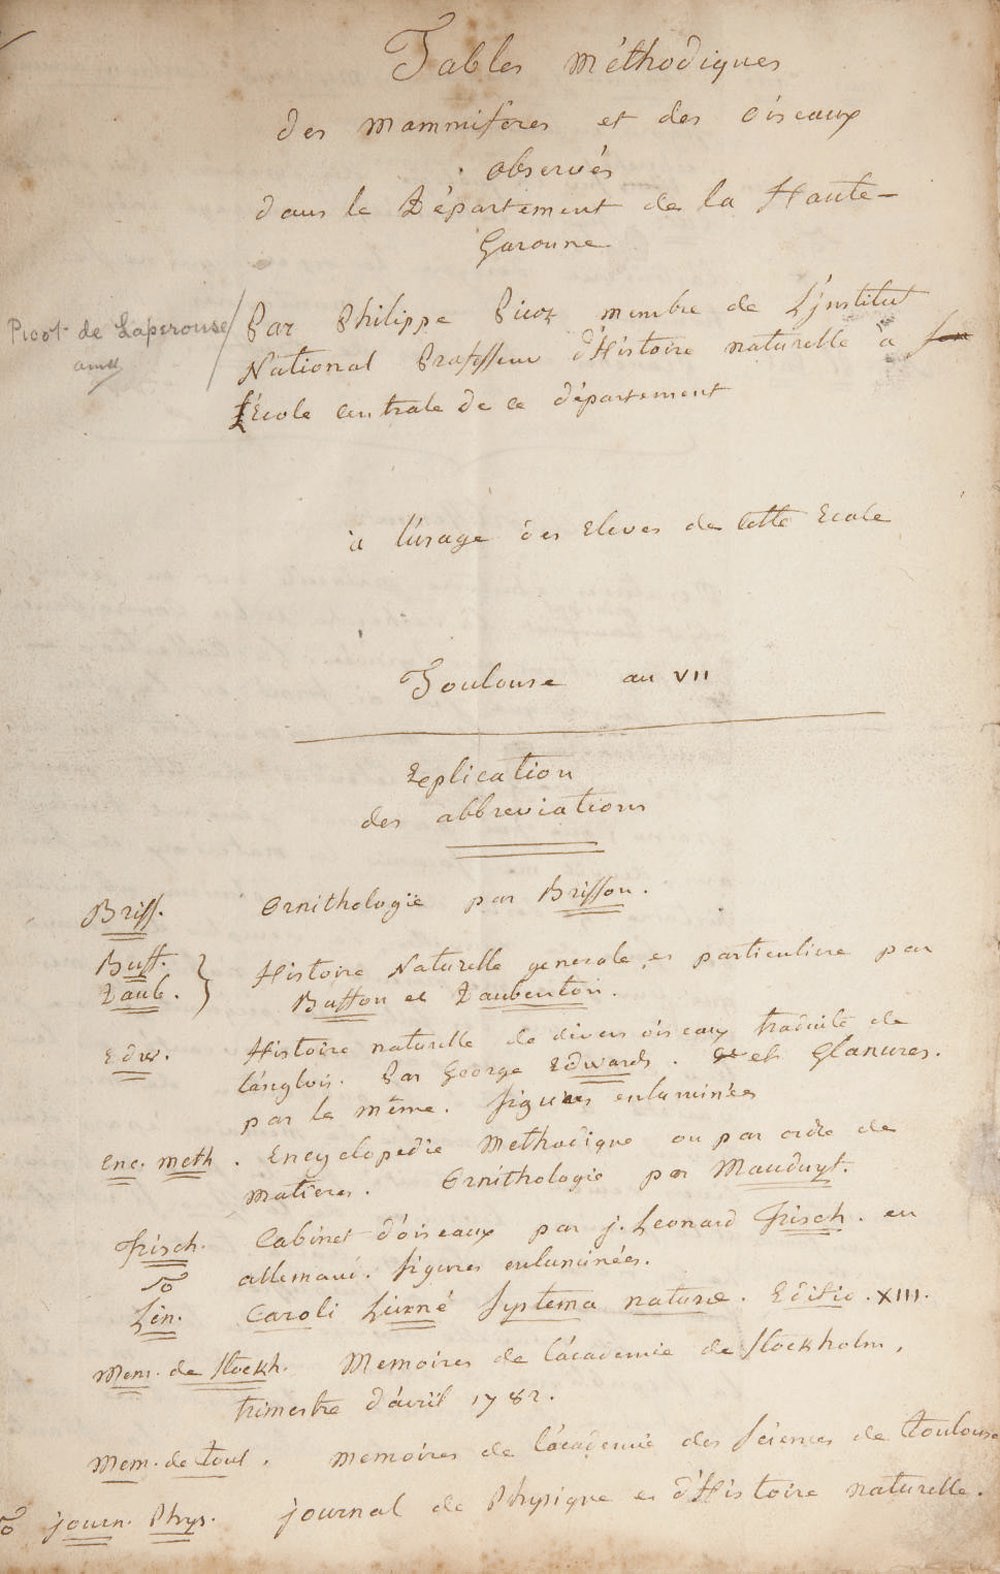 Tables méthodiques
des mammiferes et des oiseaux
observés
dans le Département de la Haute-
Garonne
Picot de Laperouse
Par Philippe Picot membre de L'institut
National Professeur d'Histoire naturelle à
L'Ecole centrale de ce département
à l'usage des Eleves de cette Ecole
Toulouse an VII
Explication
des abbreviations
Briss. Ornithologie par Brisson.
Buff. Histoire Naturelle generale et particuliere par
Daub. Buffon et Daubenton.
Edw. Histoire naturelle de divers oiseaux traduite de
l'anglois. Par George Edwards. et Glanures.
par le même. figures enluminées
Enc. meth. Encyclopedie Methodique ou par ordre de
matieres. Ornithologie par Mauduyt.
frisch. Cabinet d'oiseaux par j. Leonard frisch. en
allemand. figures enluminées.
Lin. Caroli Linné Systema naturæ. Editio. XIII.
Mem. de Stockh. Memoires de l'academie de Stockholm,
trimestre d'avril 1782.
Mem. de Toul. Memoires de l'academie des Sciences de Toulouse
journ. Phys. journal de Physique et d'Histoire naturelle.